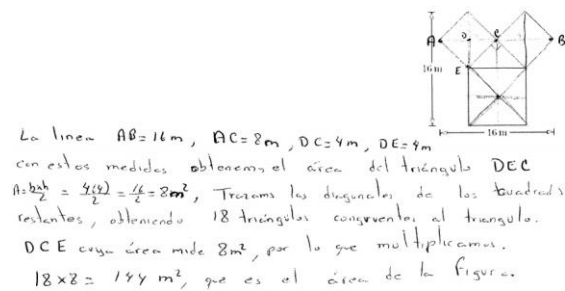 A D C B
E
16 m
16 m
La linea AB=16m, AC=8m, DC=4m, DE=4m
con estos medidas obtenemos el área del triángulo DEC
A=bxh/2 = 4(4)/2 = 16/2 = 8m², Trazams las diagonales de los cuadrads
restantes, obteniendo 18 triángulos congruentes al triangulo.
DCE cuya área mide 8m², por lo que multiplicamos.
18x8= 144 m², que es el área de la figura.